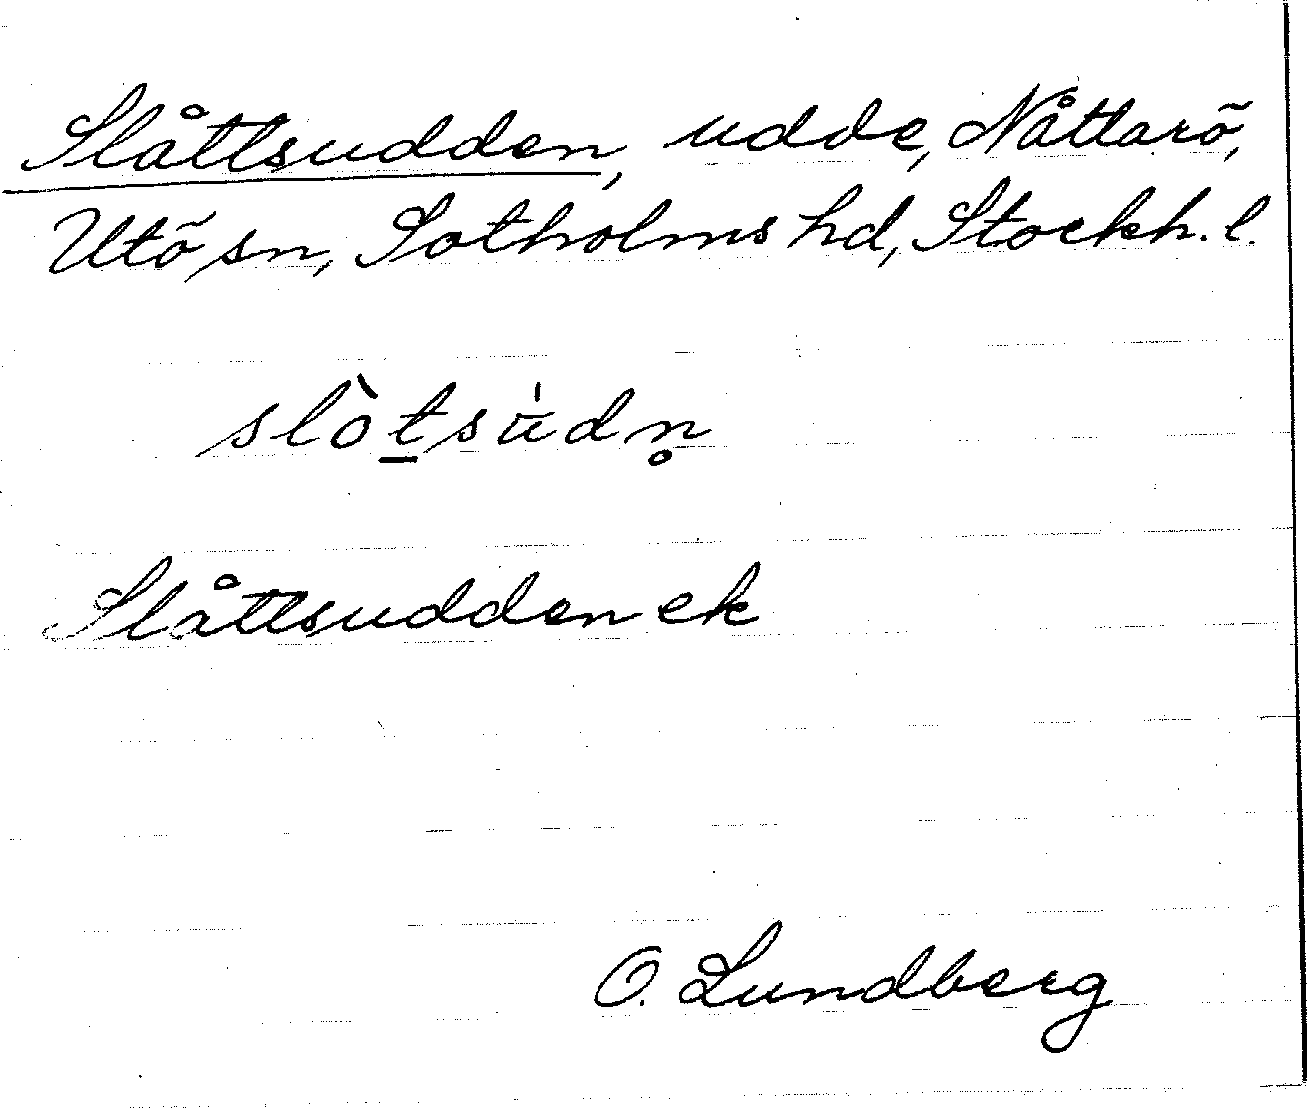 Slåttsudden, udde, Nåttarö,
Utö sn, Sotholms hd, Stockh. l.
slòt̲sùdn̥
Slåttsudden ek
O. Lundberg